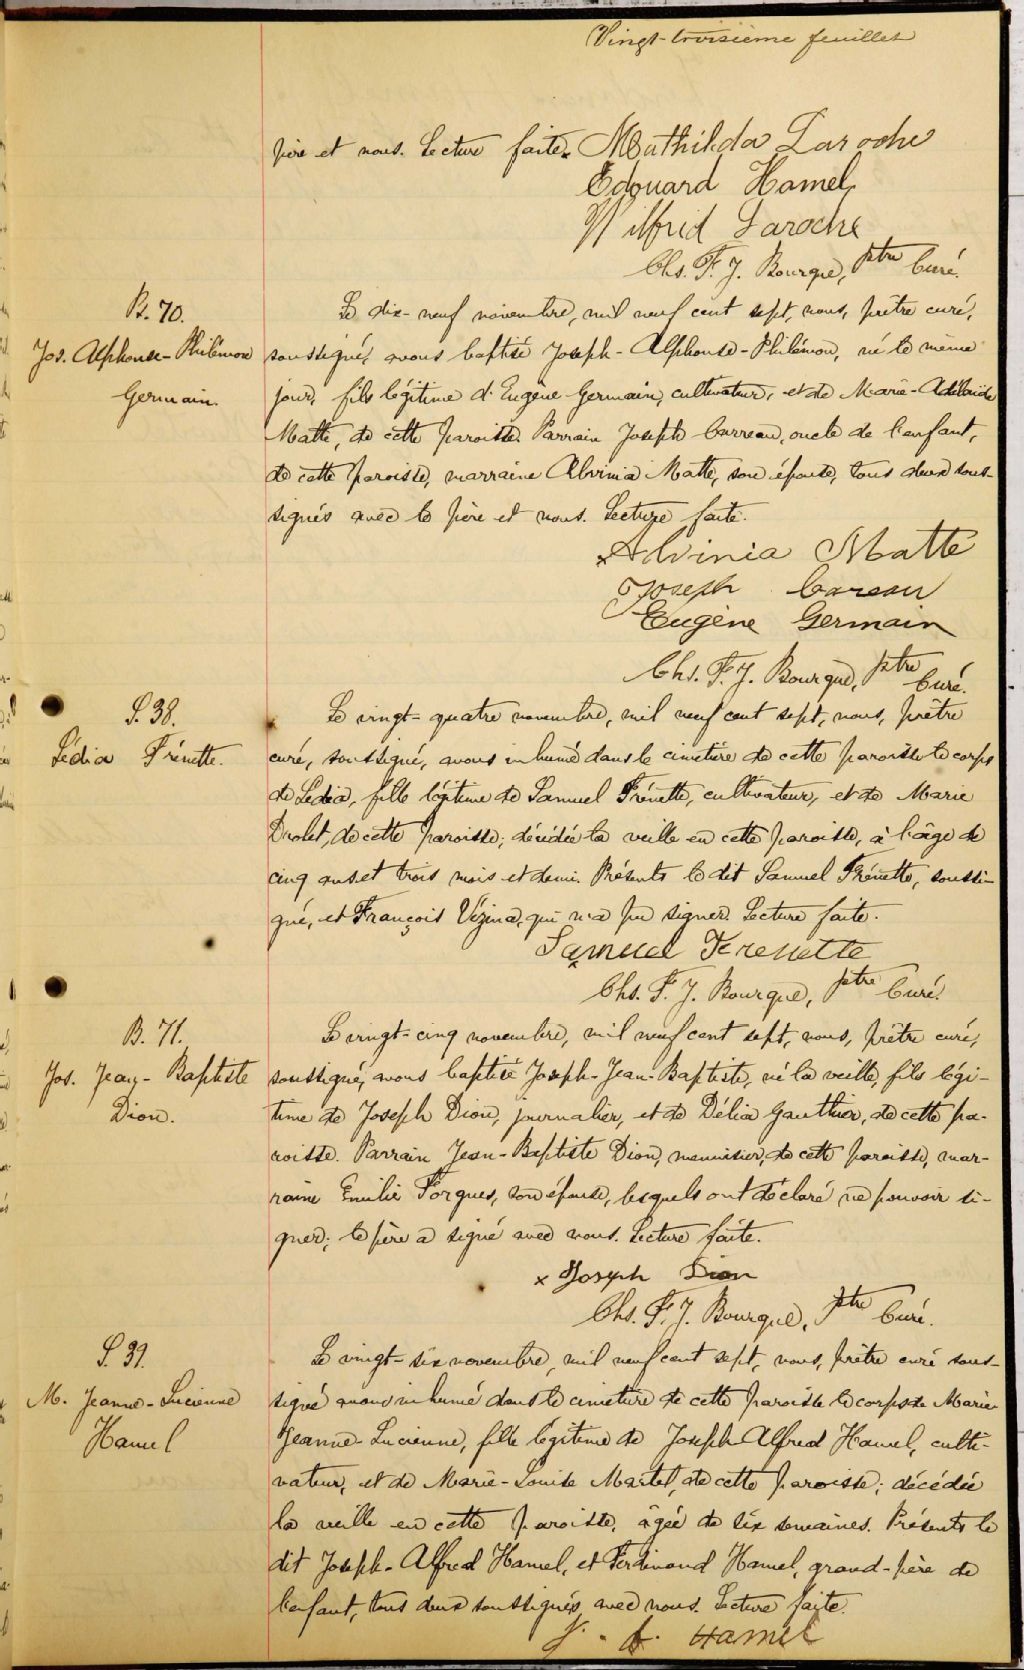 Vingt-troisième feuillet
père et nous. Lecture faite. Mathilda Laroche
Edouard Hamel
Wilfrid Laroche
Chs. F. J. Bourque, ptre Curé.
B. 70.
Jos. Alphonse-Philémon
Germain.
Le dix-neuf novembre, mil neuf cent sept, nous, prêtre curé,
soussigné, avons baptisé Joseph-Alphonse-Philémon, né le même
jour, fils légitime d'Eugène Germain, cultivateur, et de Marie-Adélaïde
Matte, de cette paroisse. Parrain Joseph Carreau, oncle de l'enfant,
de cette paroisse, marraine Alvinia Matte, son épouse, tous deux sous-
signés avec le père et nous. Lecture faite.
x Alvinia Matte
Joseph Careau
Eugène Germain
Chs. F. J. Bourque, ptre Curé.
S. 38.
Lédia Frénette.
Le vingt-quatre novembre, mil neuf cent sept, nous, prêtre
curé, soussigné, avons inhumé dans le cimetière de cette paroisse le corps
de Lédia, fille légitime de Samuel Frénette, cultivateur, et de Marie
Drolet, de cette paroisse; décédée la veille en cette paroisse, à l'âge de
cinq ans et trois mois et demi. Présents le dit Samuel Frénette, soussi-
gné, et François Vézina, qui n'a pu signer. Lecture faite.
Samuel Frenette
Chs. F. J. Bourque, ptre Curé.
B. 71.
Jos. Jean-Baptiste
Dion.
Le vingt-cinq novembre, mil neuf cent sept, nous, prêtre curé,
soussigné, avons baptisé Joseph-Jean-Baptiste, né la veille, fils légi-
time de Joseph Dion, journalier, et de Délia Gauthier, de cette pa-
roisse. Parrain Jean-Baptiste Dion, menuisier, de cette paroisse, mar-
raine Emilie Forgues, son épouse, lesquels ont déclaré ne pouvoir si-
gner; le père a signé avec nous. Lecture faite.
x Joseph Dion
Chs. F. J. Bourque, Ptre Curé.
S. 39.
M. Jeanne-Lucienne
Hamel
Le vingt-six novembre, mil neuf cent sept, nous, prêtre curé sous-
signé avons inhumé dans le cimetière de cette paroisse le corps de Marie-
Jeanne-Lucienne, fille légitime de Joseph-Alfred Hamel, culti-
vateur, et de Marie-Louise Martel, de cette paroisse; décédée
la veille en cette paroisse, âgée de six semaines. Présents le
dit Joseph-Alfred Hamel, et Ferdinand Hamel, grand-père de
l'enfant, tous deux soussignés avec nous. Lecture faite.
J. A. Hamel